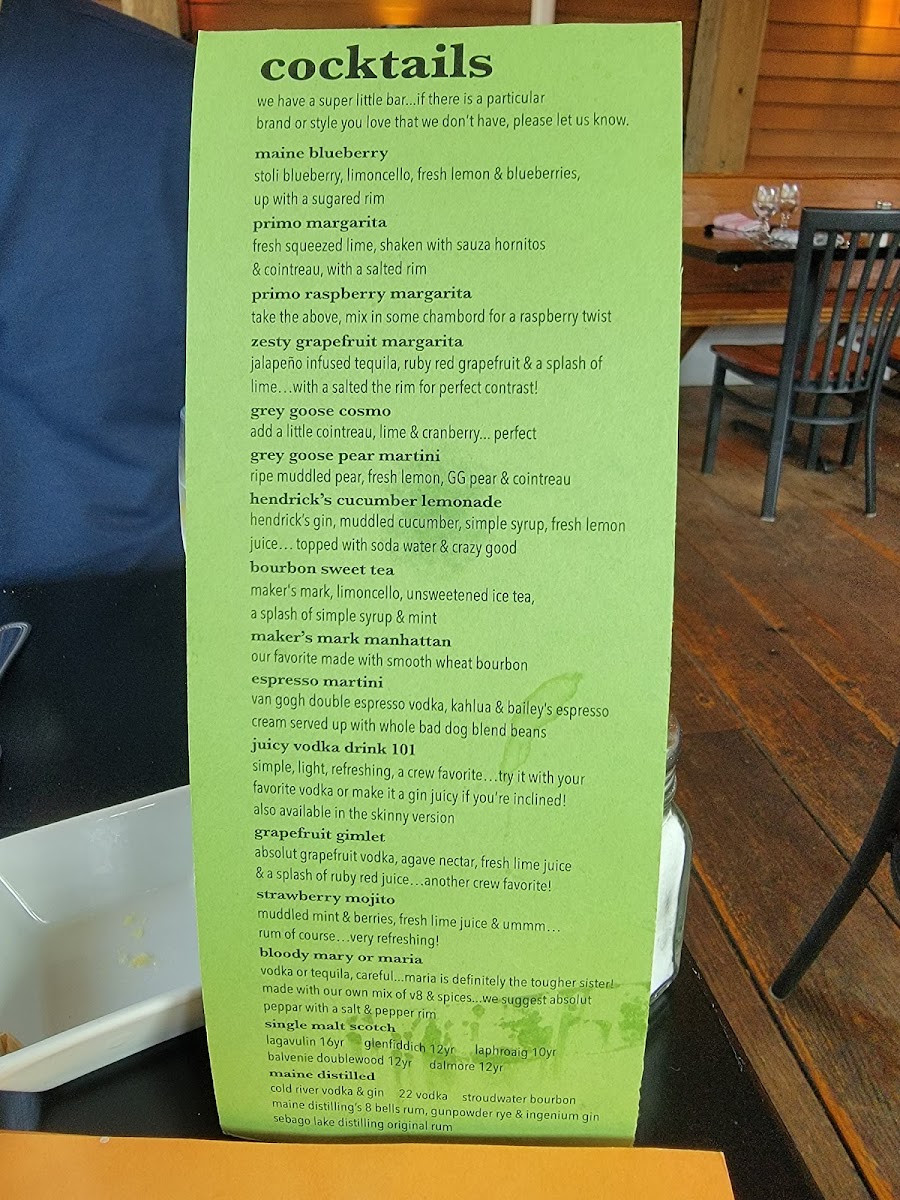 cocktails
we have a super little bar...if there is a particular
brand or style you love that we don't have, please let us know.
maine blueberry
stoli blueberry, limoncello, fresh lemon & blueberries,
up with a sugared rim
primo margarita
fresh squeezed lime, shaken with sauza hornitos
& cointreau, with a salted rim
primo raspberry margarita
take the above, mix in some chambord for a raspberry twist
zesty grapefruit margarita
jalapeño infused tequila, ruby red grapefruit & a splash of
lime...with a salted the rim for perfect contrast!
grey goose cosmo
add a little cointreau, lime & cranberry... perfect
grey goose pear martini
ripe muddled pear, fresh lemon, GG pear & cointreau
hendrick's cucumber lemonade
hendrick's gin, muddled cucumber, simple syrup, fresh lemon
juice... topped with soda water & crazy good
bourbon sweet tea
maker's mark, limoncello, unsweetened ice tea,
a splash of simple syrup & mint
maker's mark manhattan
our favorite made with smooth wheat bourbon
espresso martini
van gogh double espresso vodka, kahlua & bailey's espresso
cream served up with whole bad dog blend beans
juicy vodka drink 101
simple, light, refreshing, a crew favorite...try it with your
favorite vodka or make it a gin juicy if you're inclined!
also available in the skinny version
grapefruit gimlet
absolut grapefruit vodka, agave nectar, fresh lime juice
& a splash of ruby red juice...another crew favorite!
strawberry mojito
muddled mint & berries, fresh lime juice & ummm...
rum of course...very refreshing!
bloody mary or maria
vodka or tequila, careful...maria is definitely the tougher sister!
made with our own mix of v8 & spices...we suggest absolut
peppar with a salt & pepper rim
single malt scotch
lagavulin 16yr glenfiddich 12yr laphroaig 10yr
balvenie doublewood 12yr dalmore 12yr
maine distilled
cold river vodka & gin 22 vodka stroudwater bourbon
maine distilling's 8 bells rum, gunpowder rye & ingenium gin
sebago lake distilling original rum